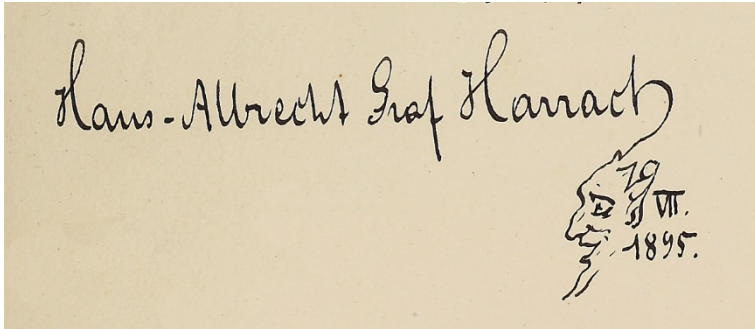 Hans-Albrecht Graf Harrach
19
VII.
1895.